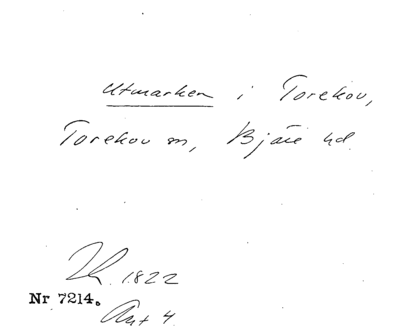 Utmarken i Torekov,
Torekov sn, Bjäre hd
1822
Nr 7214.
Ant 4